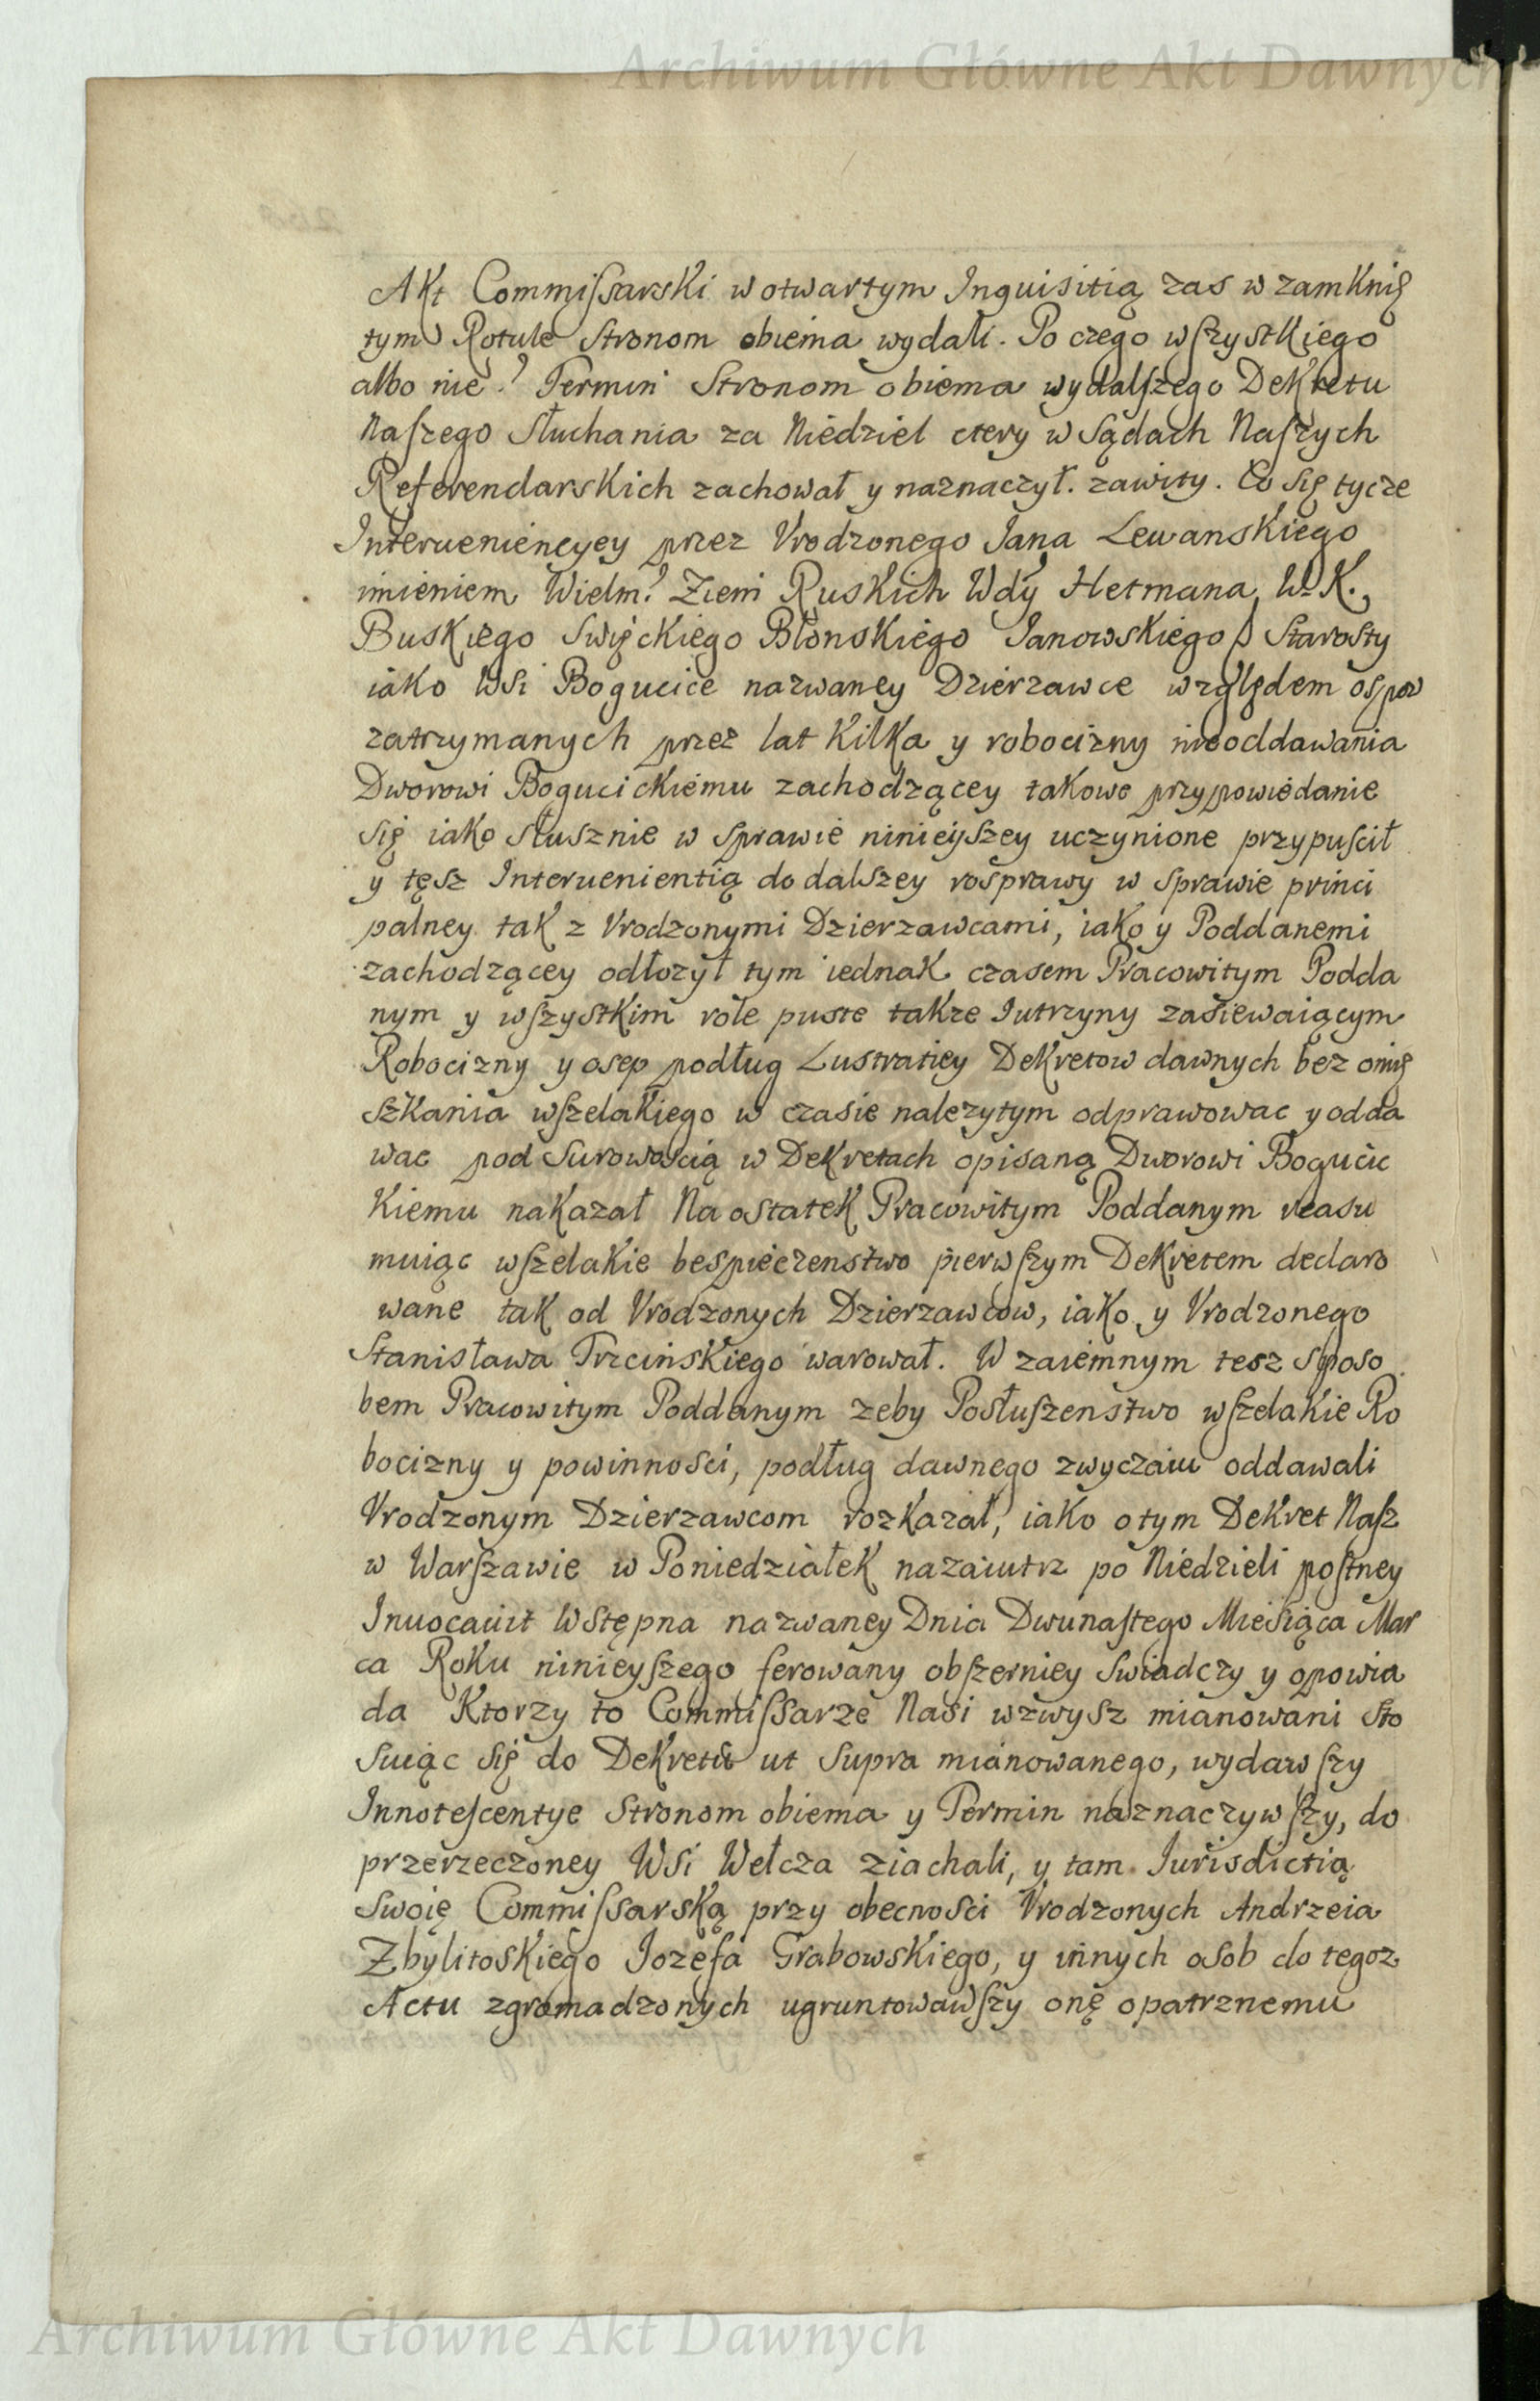 Archiwum Główne Akt Dawnych
Akt Commissarski w otwartym Inquisitią zas w zamknię
tym Rotule Stronom obiema wydali. Po czego wszystkiego
albo nie? Termin Stronom obiema wydalszego Dekretu
Naszego Słuchania za Niedziel ctery w Sądach Naszych
Referendarskich zachował y naznaczył. zawity. Co się tycze
Interueniencyey przez Vrodzonego Jana Lewanskiego
imieniem Wielm? Ziem Ruskich Wdy Hetmana W. K.
Buskiego Swięckiego Błonskiego Janowskiego Starosty
iako Wsi Bogucice nazwaney Dzierzawce względem ospow
zatrzymanych przez lat kilka y robocizny nieoddawania
Dworowi Bogucickiemu zachodzącey takowe przypowiedanie
się iako słusznie w sprawie ninieyszey uczynione przypuścił
y tęsz Interuenientią do dalszey rosprawy w sprawie princi
palney tak z Vrodzonymi Dzierzawcami, iako y Poddanemi
zachodzącey odłozył tym iednak czasem Pracowitym Podda
nym y wszystkim role puste takze Jutrzyny zasiewaiącym
Robocizny y osep podług Lustratiey Dekretow dawnych bez omię
szkania wszelakiego w czasie nalezytym odprawowac y odda
wac pod Surowością w Dekretach opisaną Dworowi Bogucic
kiemu nakazał Na ostatek Pracowitym Poddanym reasu
muiąc wszelakie bespieczenstwo pierwszym Dekretem declaro
wane tak od Vrodzonych Dzierzawcow, iako y Vrodzonego
Stanisława Trzcinskiego warował. W zaiemnym tesz sposo
bem Pracowitym Poddanym zeby Posłuszenstwo wszelakie Ro
bocizny y powinności, podług dawnego zwyczaiu oddawali
Vrodzonym Dzierzawcom rozkazał, iako o tym Dekret Nasz
w Warszawie w Poniedziałek nazaiutrz po Niedzieli postney
Inuocauit Wstępna nazwaney Dnia Dwunastego Miesiąca Mar
ca Roku ninieyszego ferowany obszerniey swiadczy y opowia
da Ktorzy to Commissarze Nasi wzwysz mianowani sto
suiąc się do Dekretu ut supra mianowanego, wydawszy
Innotescentye Stronom obiema y Termin naznaczywszy, do
przerzeczoney Wsi Wełcza ziachali, y tam Iurisdictią
swoię Commissarską przy obecności Vrodzonych Andrzeia
Zbylitoskiego Jozefa Grabowskiego, y innych osob do tegoz
Actu zgromadzonych ugruntowawszy onę opatrznemu
Archiwum Główne Akt Dawnych